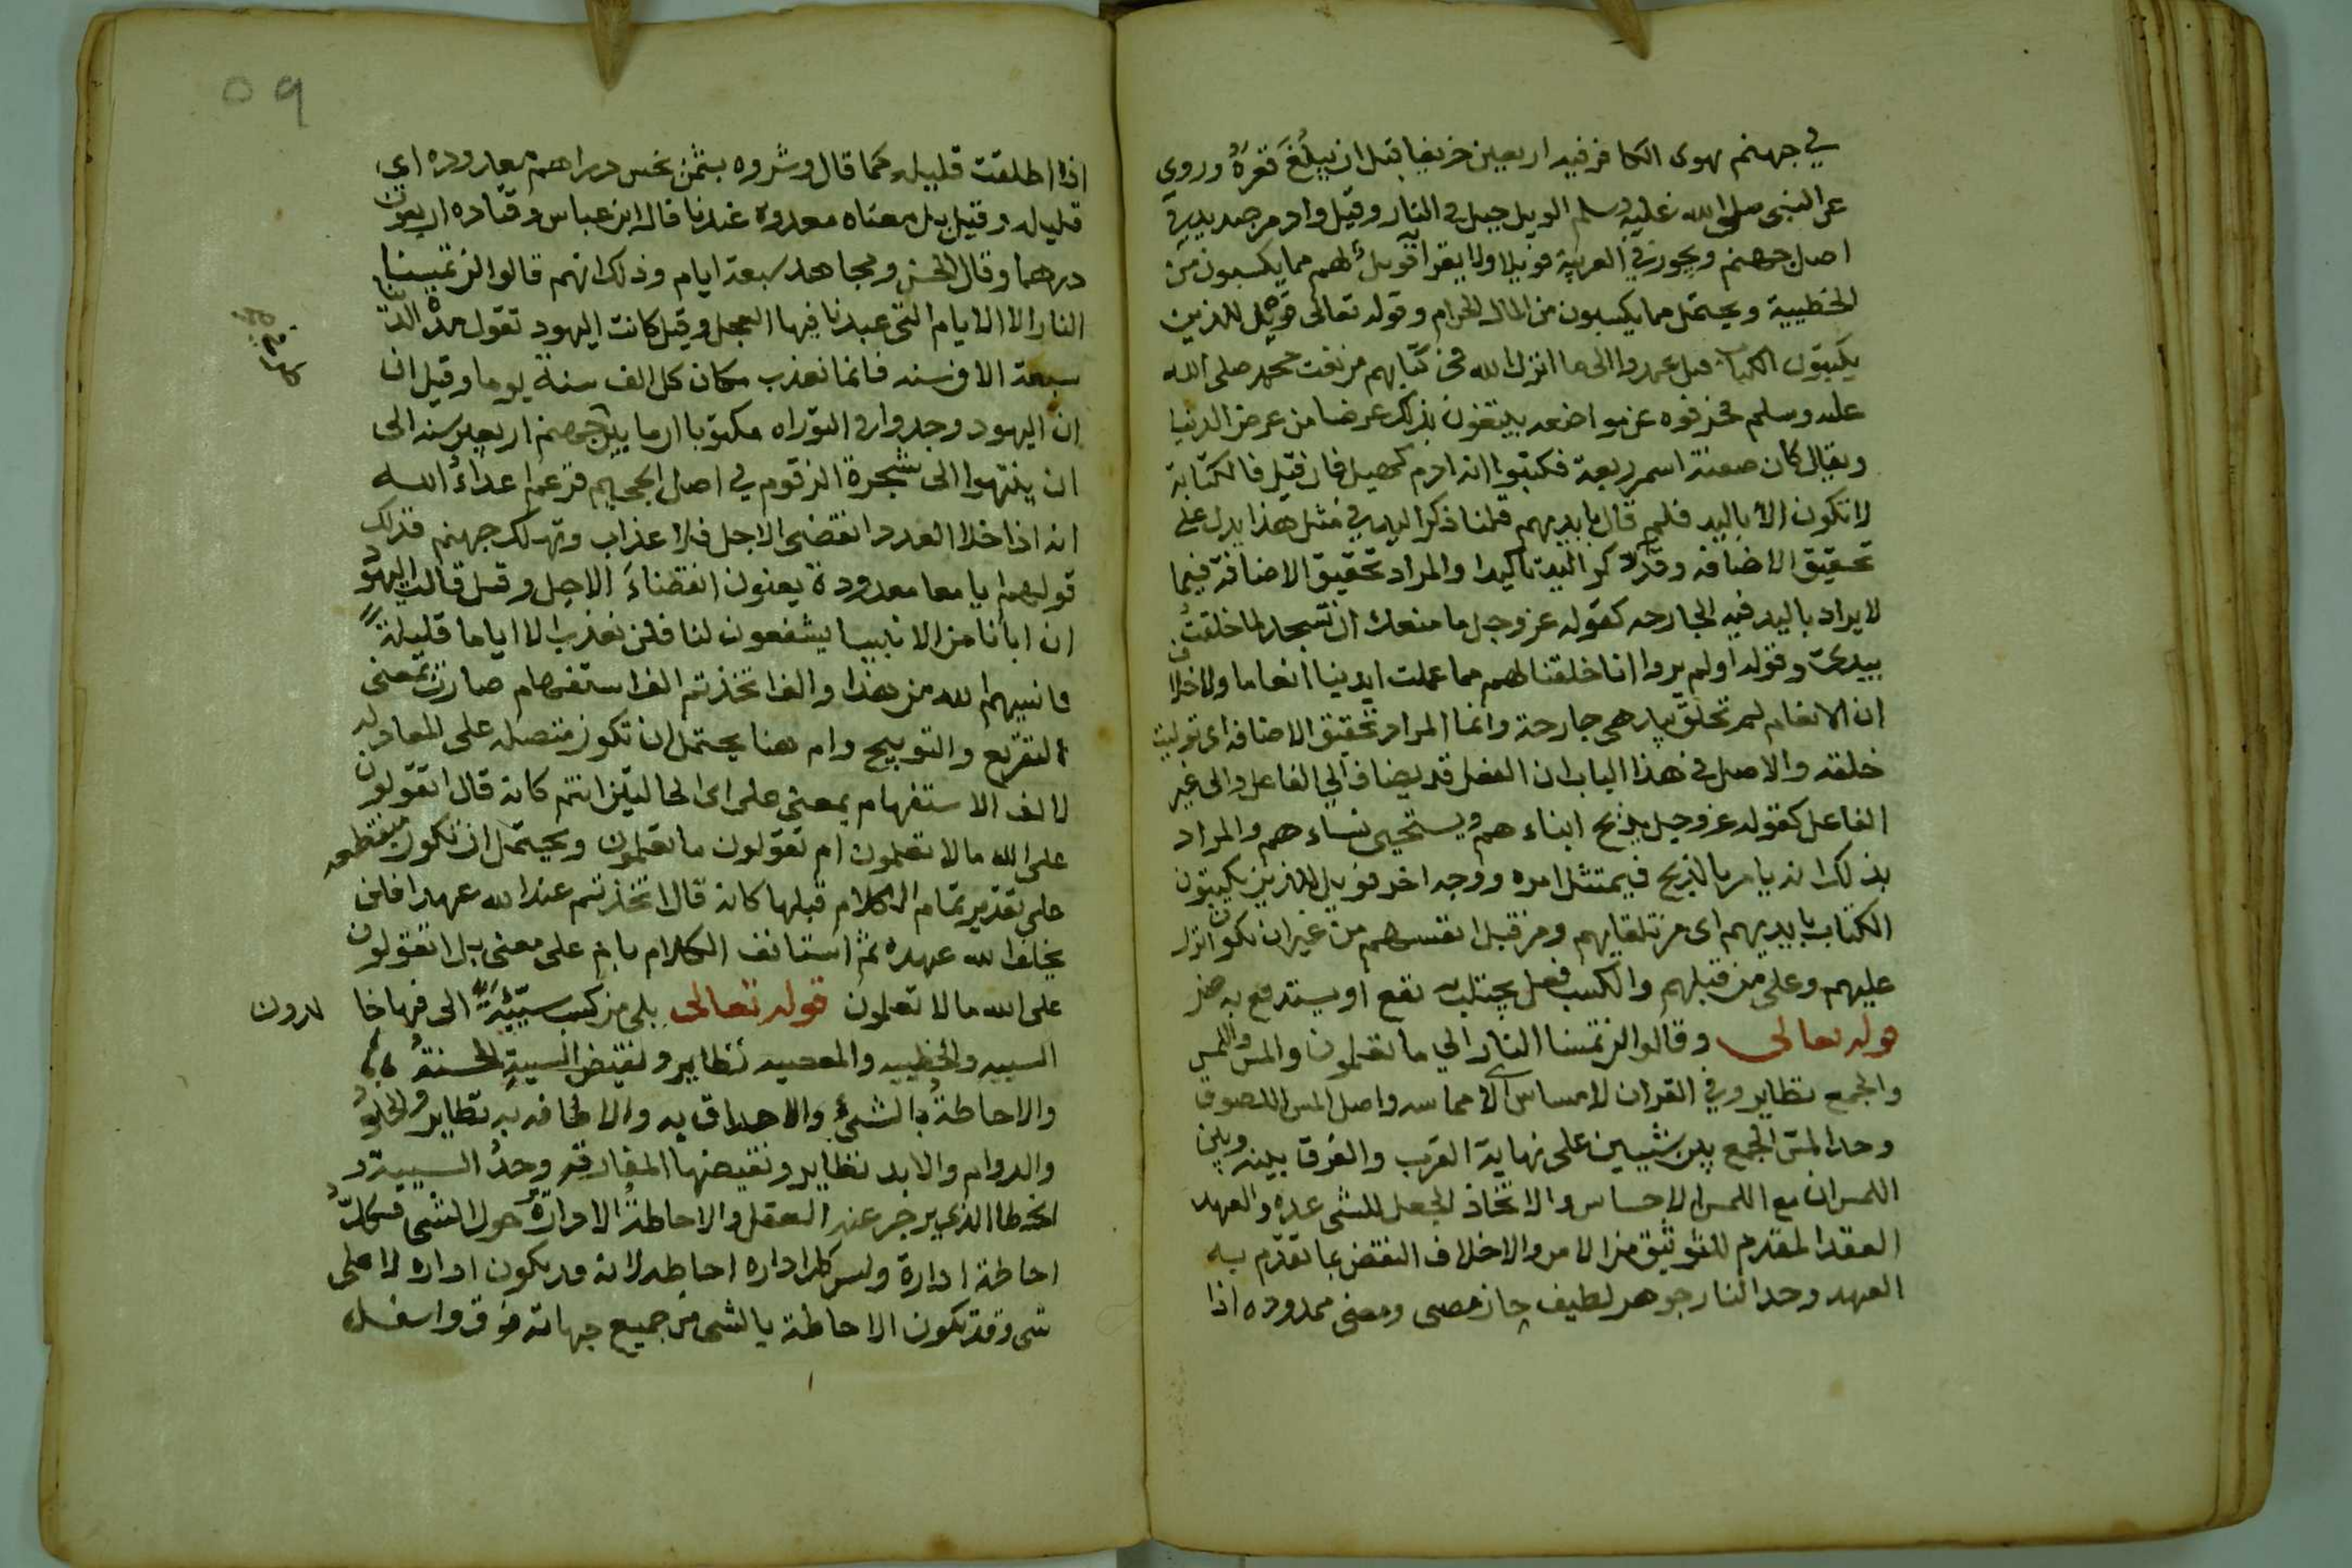 في جهنم يهوى الكافر فيه اربعين خريفا قبل ان يبلغ قعره وروي
عن النبى صلى الله عليه وسلم الويل جبل في النار وقيل واد من صديد في
اصل جهنم ويجوز في العربية فويلا ولا يقرا به فويل لهم مما يكسبون من
الخطيية ويحتمل مما يكسبون من المال الحرام وقوله تعالى فويل للذين
يكتبون الكتاب قيل عمدوا الى ما انزل الله في كتابهم من نعت محمد صلى الله
عليه وسلم فحرفوه عن مواضعه يبتغون بذلك عرضا من عرض الدنيا
ويقال كان صفته اسمر ربعة فكتبوا انه ادم فان قيل فالكتابة
لا تكون الا باليد فلم قال بايديهم قلنا ذكر اليد في مثل هذا يدل على
تحقيق الاضافه وقد ذكر اليد تاكيدا والمراد تحقيق الاضافة فيما
لا يراد باليد فيه الجارحه كقوله عز وجل ما منعك ان تسجد لما خلقت
بيدي وقوله اولم يروا انا خلقنا لهم مما عملت ايدينا انعاما ولا خلاف
ان الانعام لم تخلق بيد هى جارحة وانما المراد تحقيق الاضافه اى توليت
خلقه والاصل في هذا الباب ان الفعل قد يضاف الي الفاعل والى غير
الفاعل كقوله عز وجل يذبح ابناءهم ويستحيى نساءهم والمراد
بذلك انه يامر بالذبح فيمتثل امره ووجه اخر فويل للذين يكتبون
الكتاب بايديهم اى من تلقايهم ومن قبل انفسهم من غير ان يكون انزل
عليهم وعلى من قبلهم والكسب فعل يجتلب به نفع او يستدفع به ضر
قوله تعالى وقالوا لن تمسنا النار الي ما تعلمون والمس واللمس
والجمع نظاير وفي القران لا مساس اى لا مماسه واصل المس اللصوق
وحد المس الجمع بين شييين على نهاية القرب والفرق بينه وبين
اللمس ان مع اللمس الاحساس والاتخاذ الجعل للشى عدة والعهد
العقد المقدم للتوثيق من الامر والاخلاف النقض بما تقدم به
العهد وحد النار جوهر لطيف حار مضى ومعنى معدوده اذا
٥٩
اذا اطلقت قليله كما قال وشروه بثمن بخس دراهم معدوده اى
قليله وقيل بل معناه معدوه عندنا قال ابن عباس وقتاده اربعون
درهما وقال الحسن ومجاهد سبعة ايام وذلك انهم قالوا لن تمسنا
النار الا الايام التى عبدنا فيها العجل وقيل كانت اليهود تقول مدة الدنيا
سبعة الاف سنه فانما نعذب مكان كل الف سنة يوما وقيل ان
ان اليهود وجدوا في التوراه مكتوبا ان ما بين جهنم اربعين سنه الى
ان ينتهوا الى شجرة الزقوم في اصل الجحيم فزعم اعداء الله
انه اذا خلا العدد انقضى الاجل فلا عذاب وتهلك جهنم فذلك
قولهم اياما معدودة يعنون انقضاء الاجل وقيل قالت اليهود
ان اباءنا من الانبيا يشفعون لنا فلن نعذب الا اياما قليلة
فانبيهم الله من هذا والف اتخذتم الف استفهام صارت بمعنى
التقريع والتوبيخ وام هنا يحتمل ان تكون متصله على المعادله
لالف الاستفهام بمعنى على اى الحالتين انتم كانه قال اتقولون
على الله ما لا تعلمون ام تقولون ما تعلمون ويحتمل ان تكون منقطعه
على تقدير تمام الكلام قبلها كانه قال اتخذتم عند الله عهدا فلن
يخلف الله عهده ثم استانف الكلام بام على معنى بل اتقولون
على الله ما لا تعلمون قوله تعالى بلى من كسب سيئة الى فيها خا لدون
السييه والخطييه والمعصيه نظاير ونقيض السيية الحسنة
والاحاطة بالشئ والاحداق به والاطافه به نظاير والخلود
والدوام والابد نظاير ونقيضها المفارقه وحد السيية
الخطا الذى يزجر عنه العقل والاحاطة الادارة حول الشى فكل
احاطة ادارة وليس كل اداره احاطه لانه قد يكون اداره لا على
شى وقد تكون الاحاطة بالشى من جميع جهاته فوق واسفل